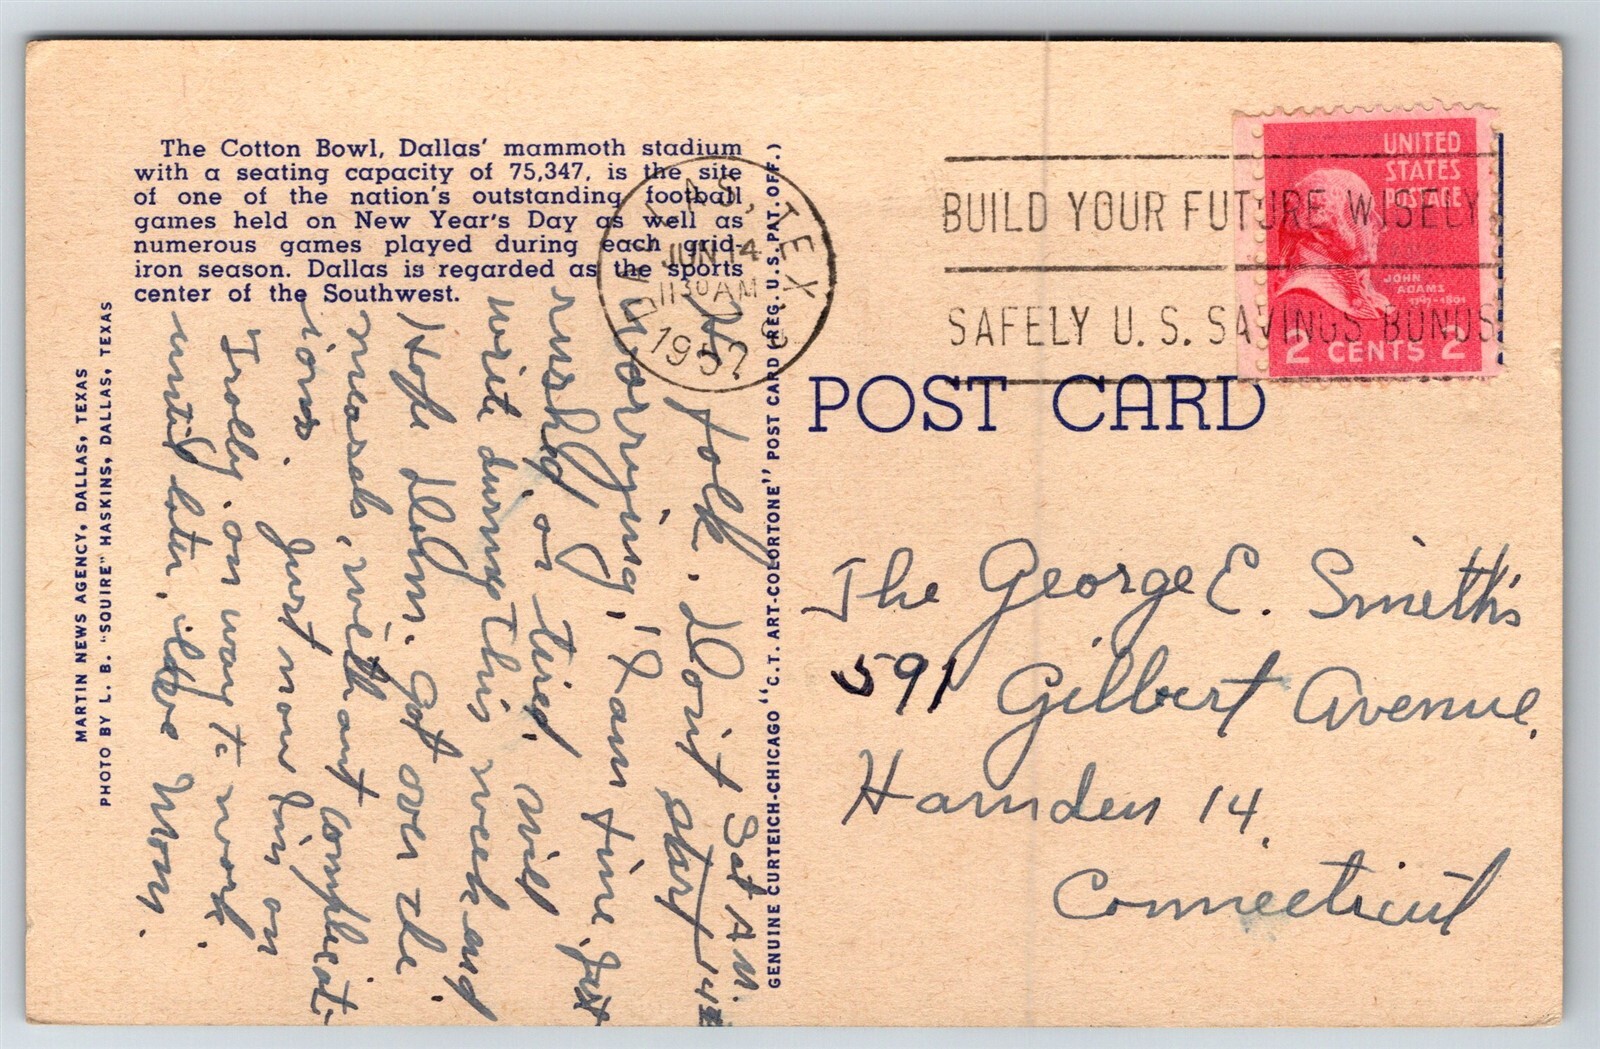 The Cotton Bowl, Dallas' mammoth stadium
with a seating capacity of 75,347, is the site
of one of the nation's outstanding football
games held on New Year's Day as well as
numerous games played during each grid-
iron season. Dallas is regarded as the sports
center of the Southwest.
MARTIN NEWS AGENCY, DALLAS, TEXAS
PHOTO BY L. B. "SQUIRE" HASKINS, DALLAS, TEXAS
Sat A.M.
14th
folk. Don't start
worrying, I am fine, just
rushed or tired, will
write during this week end
Hope Delm. got over the
measels, without complicat-
ions. Just now I'm on
Trolly on way to work.
until later, love Mom.
GENUINE CURTEICH-CHICAGO "C.T. ART-COLORTONE" POST CARD (REG. U.S. PAT. OFF.)
DALLAS, TEX
JUN 14
11 30 AM
1952
BUILD YOUR FUTURE WISELY
SAFELY U.S. SAVINGS BONDS
UNITED
STATES
POSTAGE
JOHN
ADAMS
1797-1801
2 CENTS 2
POST CARD
The George E. Smith's
591 Gilbert Avenue.
Hamden 14.
Connecticut